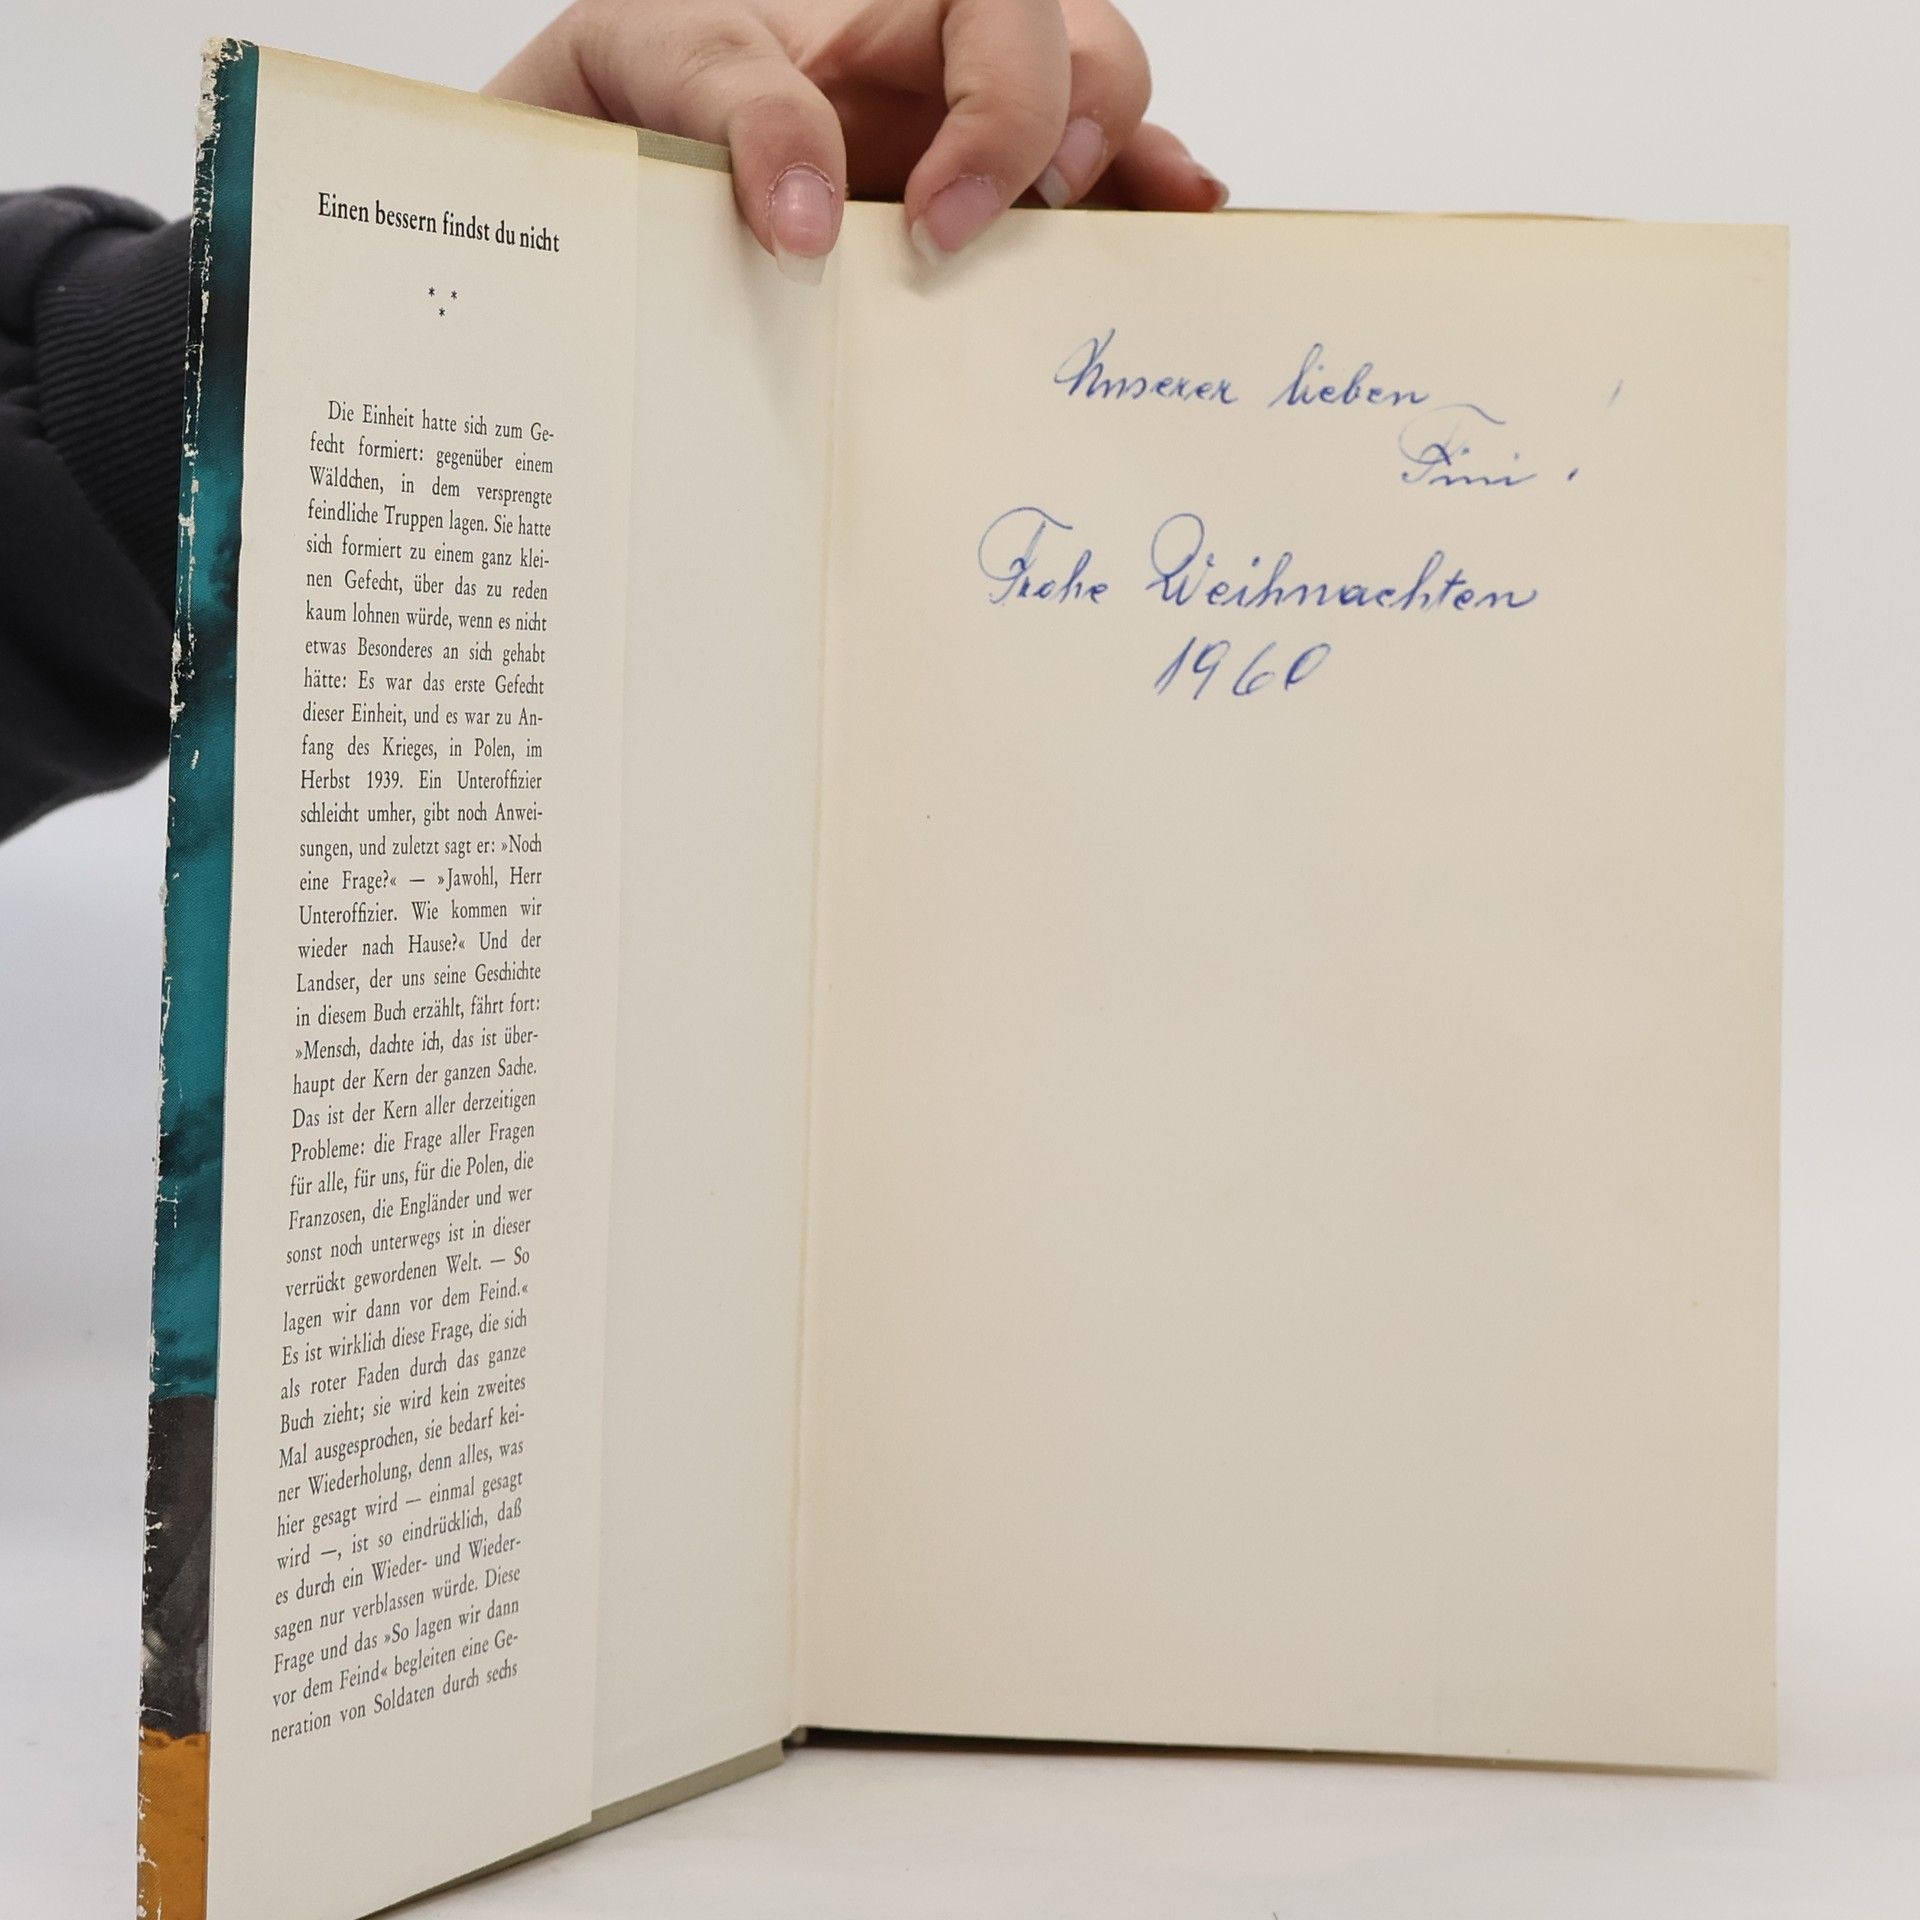 Einen bessern findst du nicht
* *
*
Die Einheit hatte sich zum Ge-
fecht formiert: gegenüber einem
Wäldchen, in dem versprengte
feindliche Truppen lagen. Sie hatte
sich formiert zu einem ganz klei-
nen Gefecht, über das zu reden
kaum lohnen würde, wenn es nicht
etwas Besonderes an sich gehabt
hätte: Es war das erste Gefecht
dieser Einheit, und es war zu An-
fang des Krieges, in Polen, im
Herbst 1939. Ein Unteroffizier
schleicht umher, gibt noch Anwei-
sungen, und zuletzt sagt er: »Noch
eine Frage?« — »Jawohl, Herr
Unteroffizier. Wie kommen wir
wieder nach Hause?« Und der
Landser, der uns seine Geschichte
in diesem Buch erzählt, fährt fort:
»Mensch, dachte ich, das ist über-
haupt der Kern der ganzen Sache.
Das ist der Kern aller derzeitigen
Probleme: die Frage aller Fragen
für alle, für uns, für die Polen, die
Franzosen, die Engländer und wer
sonst noch unterwegs ist in dieser
verrückt gewordenen Welt. — So
lagen wir dann vor dem Feind.«
Es ist wirklich diese Frage, die sich
als roter Faden durch das ganze
Buch zieht; sie wird kein zweites
Mal ausgesprochen, sie bedarf kei-
ner Wiederholung, denn alles, was
hier gesagt wird — einmal gesagt
wird —, ist so eindrücklich, daß
es durch ein Wieder- und Wieder-
sagen nur verblassen würde. Diese
Frage und das »So lagen wir dann
vor dem Feind« begleiten eine Ge-
neration von Soldaten durch sechs
Unserer lieben
Fini !
Frohe Weihnachten
1960